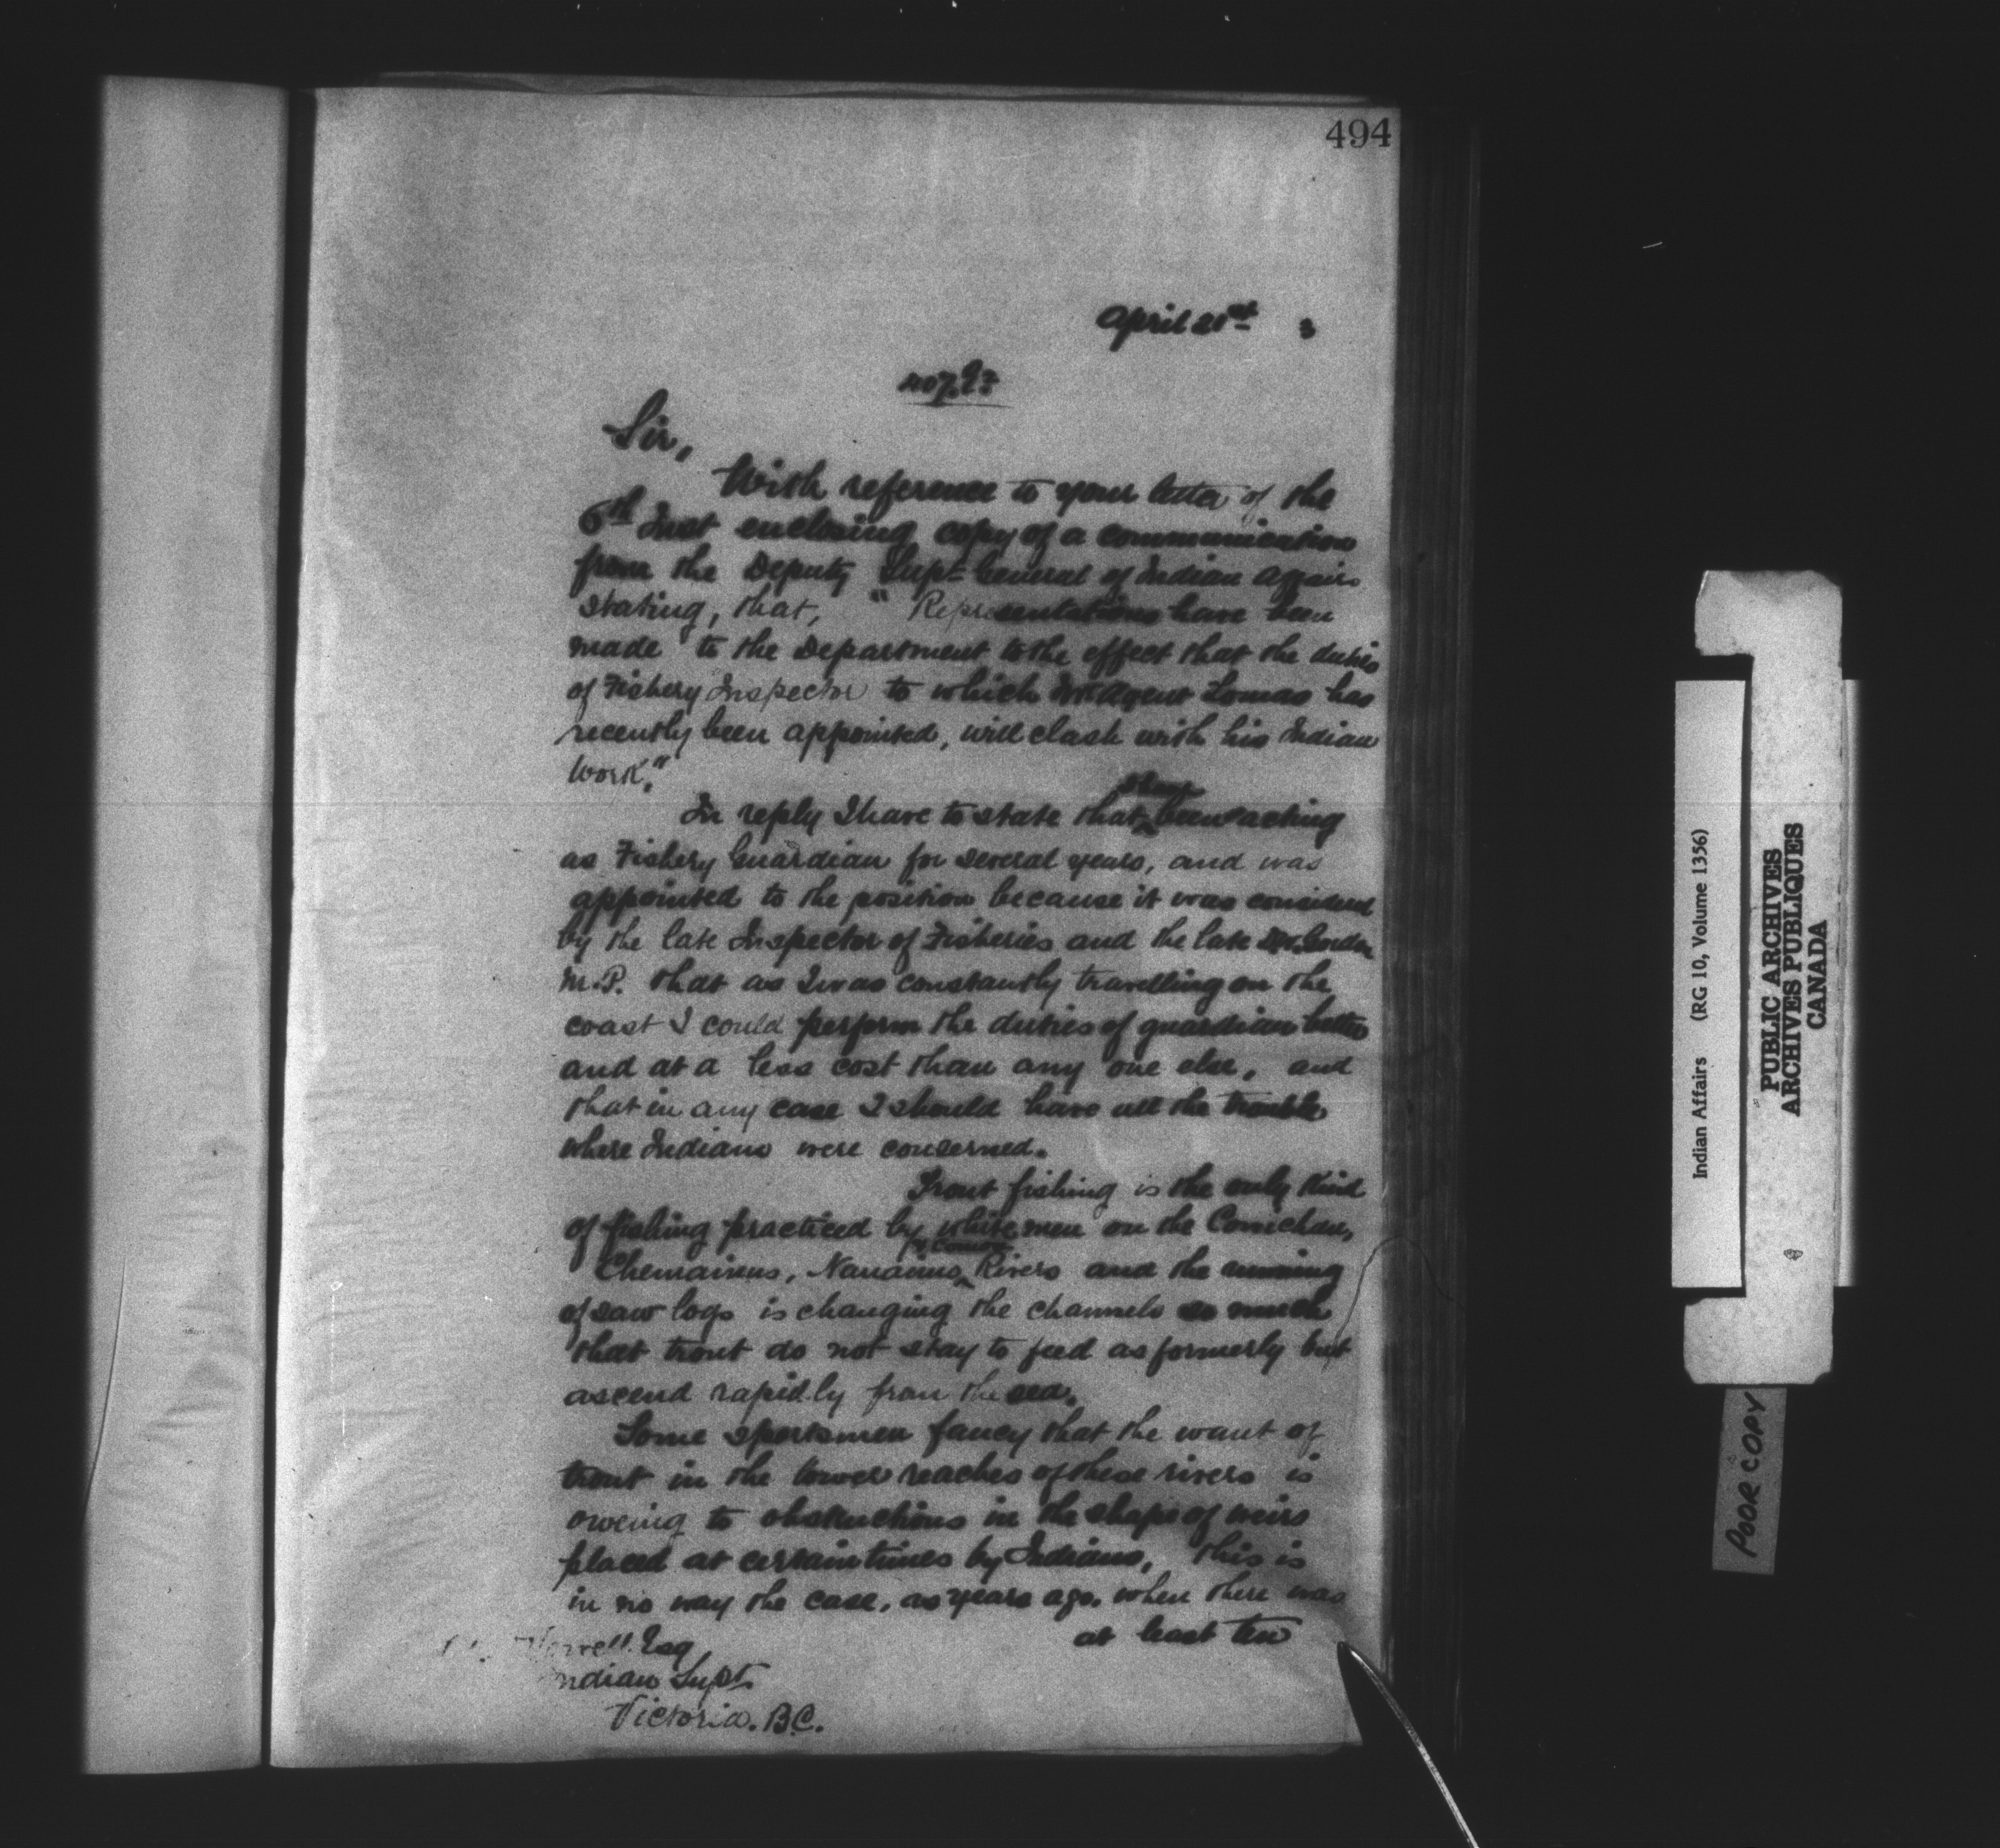 494
April 21st 3
Sir,
With reference to your letter of the
6th Inst enclosing copy of a communication
from the Deputy Supt General of Indian Affairs
stating, that, " Representations have been
made to the Department to the effect that the duties
of Fishery Inspector to which Mr Agent Lomas has
recently been appointed, will clash with his Indian
Work."
In reply I have to state that been acting
as Fishery Guardian for several years, and was
appointed to the position because it was considered
by the late Inspector of Fisheries and the late Mr. Gordon
M.P. that as I was constantly travelling on the
coast I could perform the duties of guardian better
and at a less cost than any one else, and
that in any case I should have all the trouble
where Indians were concerned.
Trout fishing is the only kind
of fishing practiced by white men on the Cowichan,
Chemainus, Nanaimo Rivers and the running
of saw logs is changing the channels so much
that trout do not stay to feed as formerly but
ascend rapidly from the sea.
Some sportsmen fancy that the want of
trout in the lower reaches of these rivers is
owing to obstructions in the shape of weirs
placed at certain times by Indians, this is
in no way the case, as years ago, when there was
at least ten
Esq
Indian Supt.
Victoria. B.C.
Indian Affairs (RG 10, Volume 1356)
PUBLIC ARCHIVES
ARCHIVES PUBLIQUES
CANADA
POOR COPY